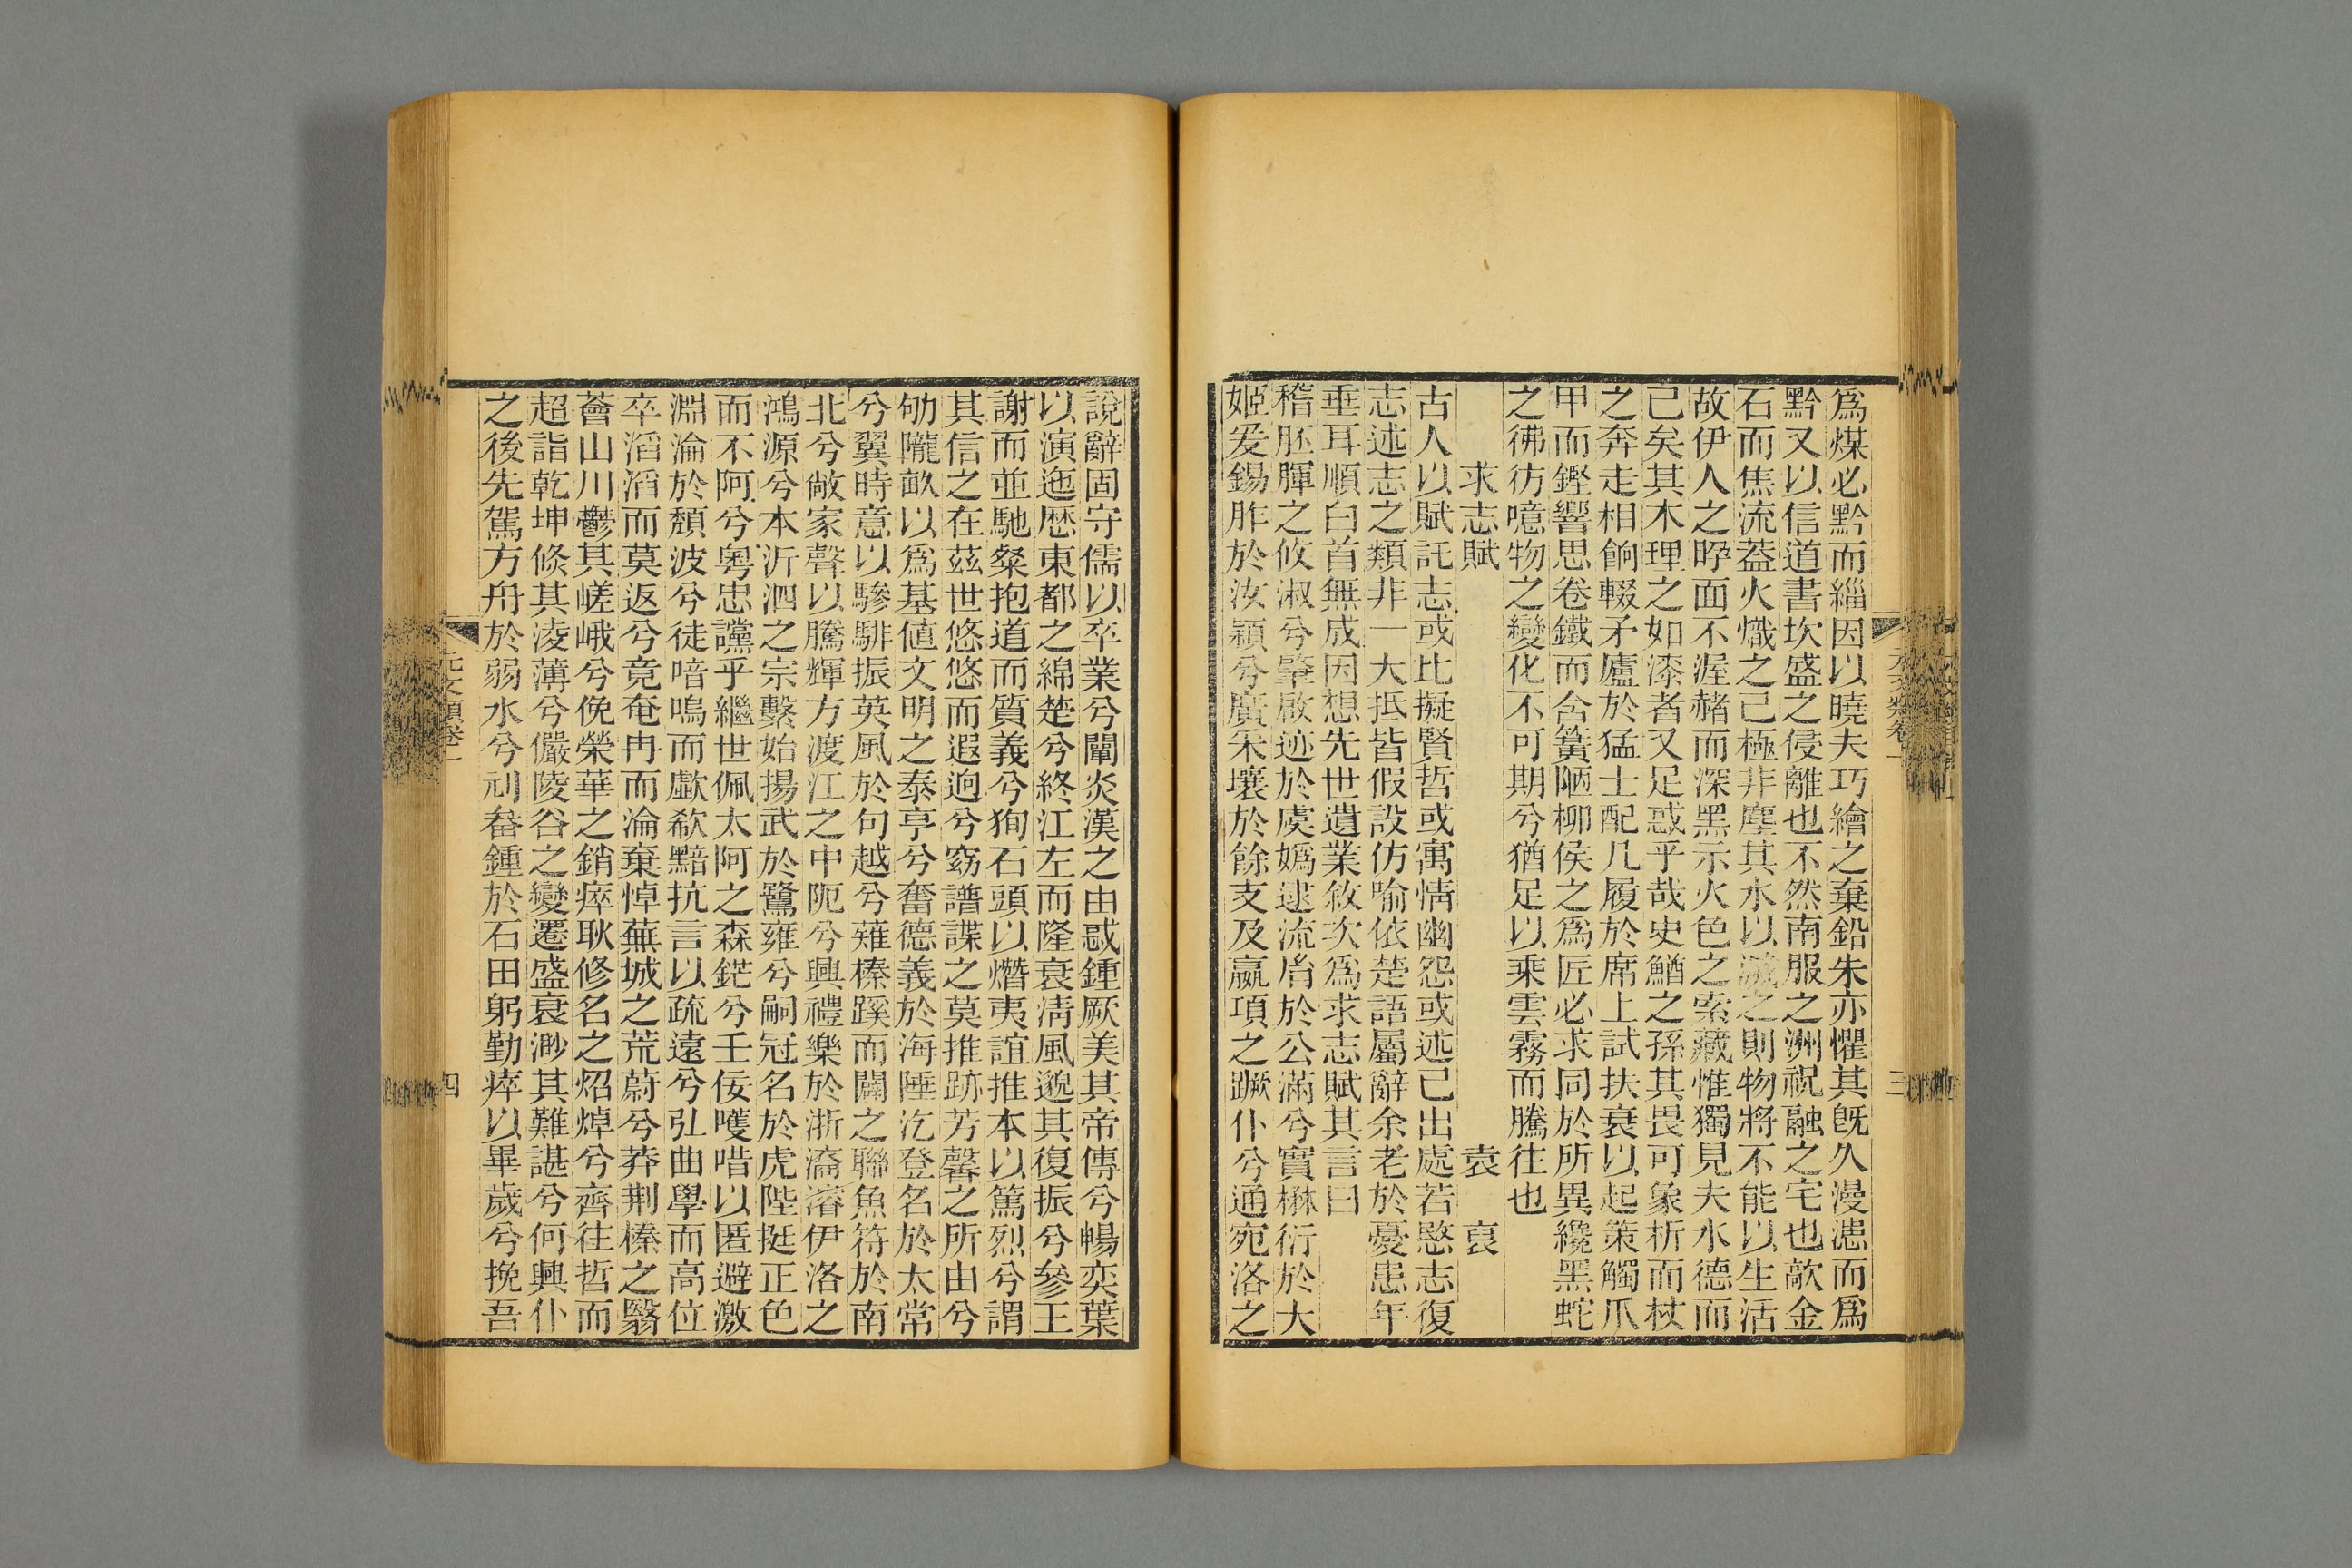 爲煤必黔而緇因以曉夫巧繪之棄鉛朱亦懼其旣久漫漶而爲
黔又以信道書坎盛之侵離也不然南服之洲祝融之宅也敵金
石而焦流葢火熾之已極非塵其水以滅之則物將不能以生活
故伊人之睟面不渥赭而深黑示火色之索藏惟獨見夫水德而
已矣其木理之如漆者又足惑乎哉史鰌之孫其畏可象析而杖
之奔走相餉輟矛廬於猛士配几履於席上試扶衰以起策觸爪
甲而鏗響思卷鐵而含簧陋柳侯之爲匠必求同於所異纔黑蛇
之彿彷噫物之變化不可期兮猶足以乘雲霧而騰往也
求志賦　袁裒
古人以賦託志或比擬賢哲或寓情幽怨或述已出處若愍志復
志述志之類非一大抵皆假設仿喻依楚語屬辭余老於憂患年
垂耳順白首無成因想先世遺業敘次爲求志賦其言曰
稽胚腪之攸淑兮肇啟迹於虞嬀逮流㡳於公滿兮實楙衍於大
姬爰錫胙於汝潁兮廣采壤於餘支及嬴項之蹶仆兮通宛洛之
說辭固守儒以卒業兮闡炎漢之由惑鍾厥美其帝傳兮暢奕葉
以演迤歷東都之綿楚兮終江左而隆衰淸風邈其復振兮參王
謝而並馳粲抱道而質義兮狥石頭以熸夷誼推本以篤烈兮謂
其信之在茲世悠悠而遐逈兮竊譜諜之莫推跡芳馨之所由兮
劬隴畝以爲基値文明之泰亨兮奮德義於海陲汔登名於太常
兮翼時意以驂騑振英風於句越兮薙榛蹊而闢之聯魚符於南
北兮敞家聲以騰輝方渡江之中阨兮興禮樂於浙濤溶伊洛之
鴻源兮本沂泗之宗繫始揚武於鷺雍兮嗣冠名於虎陛挺正色
而不阿兮粤忠讜乎繼世佩太阿之森鋩兮壬佞嚄唶以匿避激
淵淪於頹波兮徒喑嗚而歔欷黯抗言以疏遠兮弘曲學而高位
卒滔滔而莫返兮竟奄冉而淪棄悼蕪城之荒蔚兮莽荆榛之翳
薈山川鬱其嵯峨兮俛榮華之銷瘁耿修名之炤焯兮齊往哲而
超詣乾坤倏其淩薄兮儼陵谷之變遷盛衰渺其難諶兮何興仆
之後先駕方舟於弱水兮刓畚鍾於石田躬勤瘁以畢歲兮挽吾
元文類卷一
三
元文類卷一
四